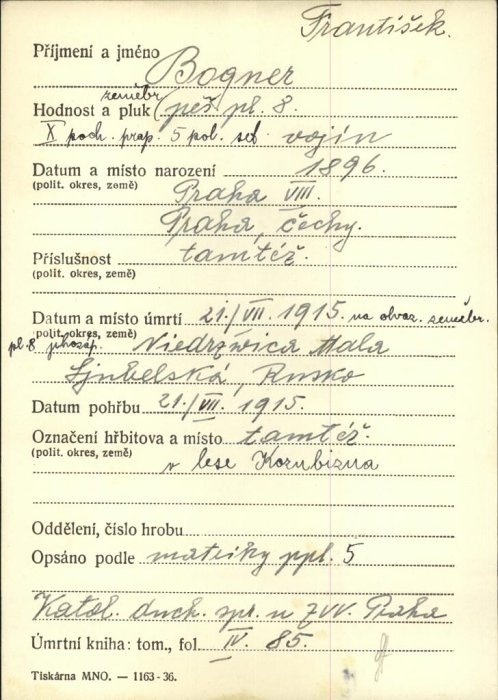 František.
Příjmení a jméno Bogner
zeměbr.
Hodnost a pluk (pěš. pl. 8.
X poch. prap. 5 pol. set vojín
Datum a místo narození 1896.
(polit. okres, země) Praha VIII.
Praha, čechy.
Příslušnost tamtéž.
(polit. okres, země)
Datum a místo úmrtí 21./VII. 1915 na obvaz. zeměbr.
(polit. okres, země) Niedrzwica Mala
pl. 8
Ljubelská, Rusko
Datum pohřbu 21./VII. 1915.
Označení hřbitova a místo tamtéž.
(polit. okres, země) v lese
Oddělení, číslo hrobu
Opsáno podle matriky ppl. 5
Katol. duch. spr. u ZVV. Praha
Úmrtní kniha: tom., fol. IV. 85.
Tiskárna MNO. — 1163-36.